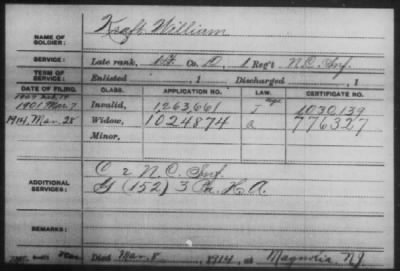 NAME OF SOLDIER: Kraft William
SERVICE: Late rank, Co. D, 1 Reg't N.C. Inf.
TERM OF SERVICE: Enlisted , 1 Discharged , 1
DATE OF FILING. CLASS. APPLICATION NO. LAW. CERTIFICATE NO.
1901 Mar. 7 Invalid, 1,263,661 1030,139
1914, Mar. 28 Widow, 1024874 a 776327
Minor,
ADDITIONAL SERVICES: C 2 N.C. Inf.
G (152) 3 Pa. H. A.
REMARKS:
Died Mar. 8, 1914, at Magnolia NJ